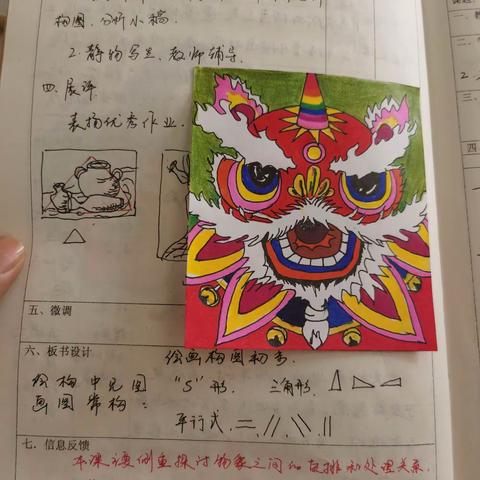 构图、分析小稿.
2.静物写生、教师辅导.
四.展评
表扬优秀作业.
五、微调
六、板书设计
绘画构图初步.
绘构中见图 "S"形. 三角形.
画图常构:
平行式.
七、信息反馈
本课要侧重探讨物象之间的安排和处理关系.